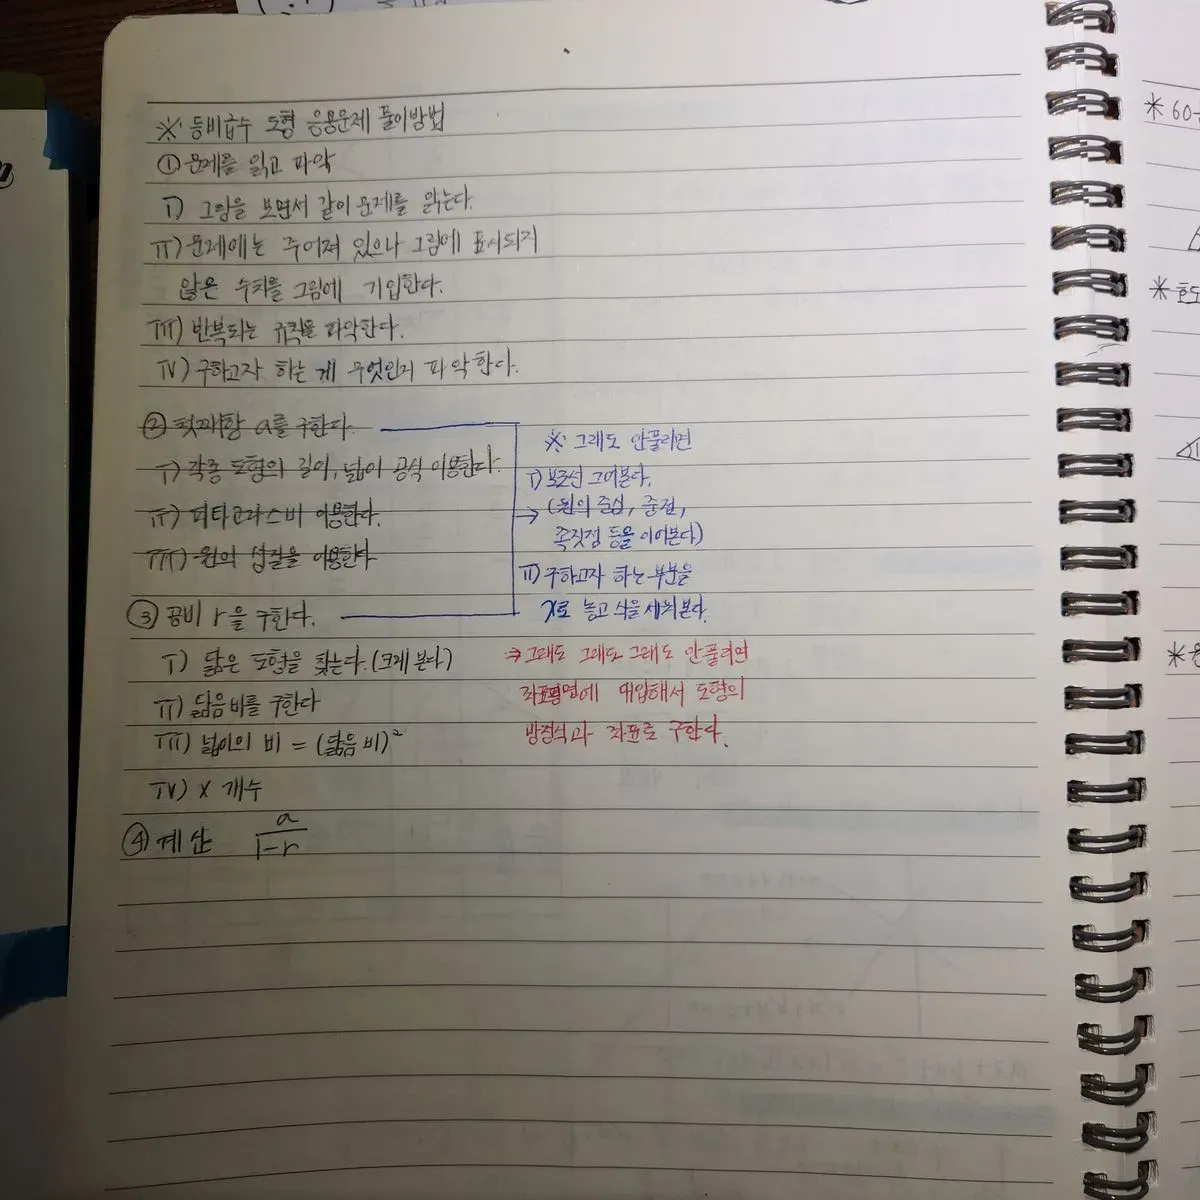 ※ 등비급수 도형 응용문제 풀이방법
① 문제를 읽고 파악
I) 그림을 보면서 같이 문제를 읽는다.
II) 문제에는 주어져 있으나 그림에 표시되지
않은 수치를 그림에 기입한다.
III) 반복되는 규칙을 파악한다.
IV) 구하고자 하는 게 무엇인지 파악한다.
② 첫째항 a를 구한다.
I) 각종 도형의 길이, 넓이 공식 이용한다.
II) 피타고라스비 이용한다.
III) 원의 성질을 이용한다
③ 공비 r을 구한다.
I) 닮은 도형을 찾는다. (크게 본다)
II) 닮음비를 구한다
III) 넓이의 비 = (닮음 비)²
IV) × 개수
④ 계산 a/1-r
※ 그래도 안풀리면
I) 보조선 그어본다.
→ (원의 중심, 중점,
꼭짓점 등을 이어본다)
II) 구하고자 하는 부분을
x로 놓고 식을 세워본다.
⇒ 그래도 그래도 그래도 안풀리면
좌표평면에 대입해서 도형의
방정식과 좌표로 구한다.
* 60
*
*